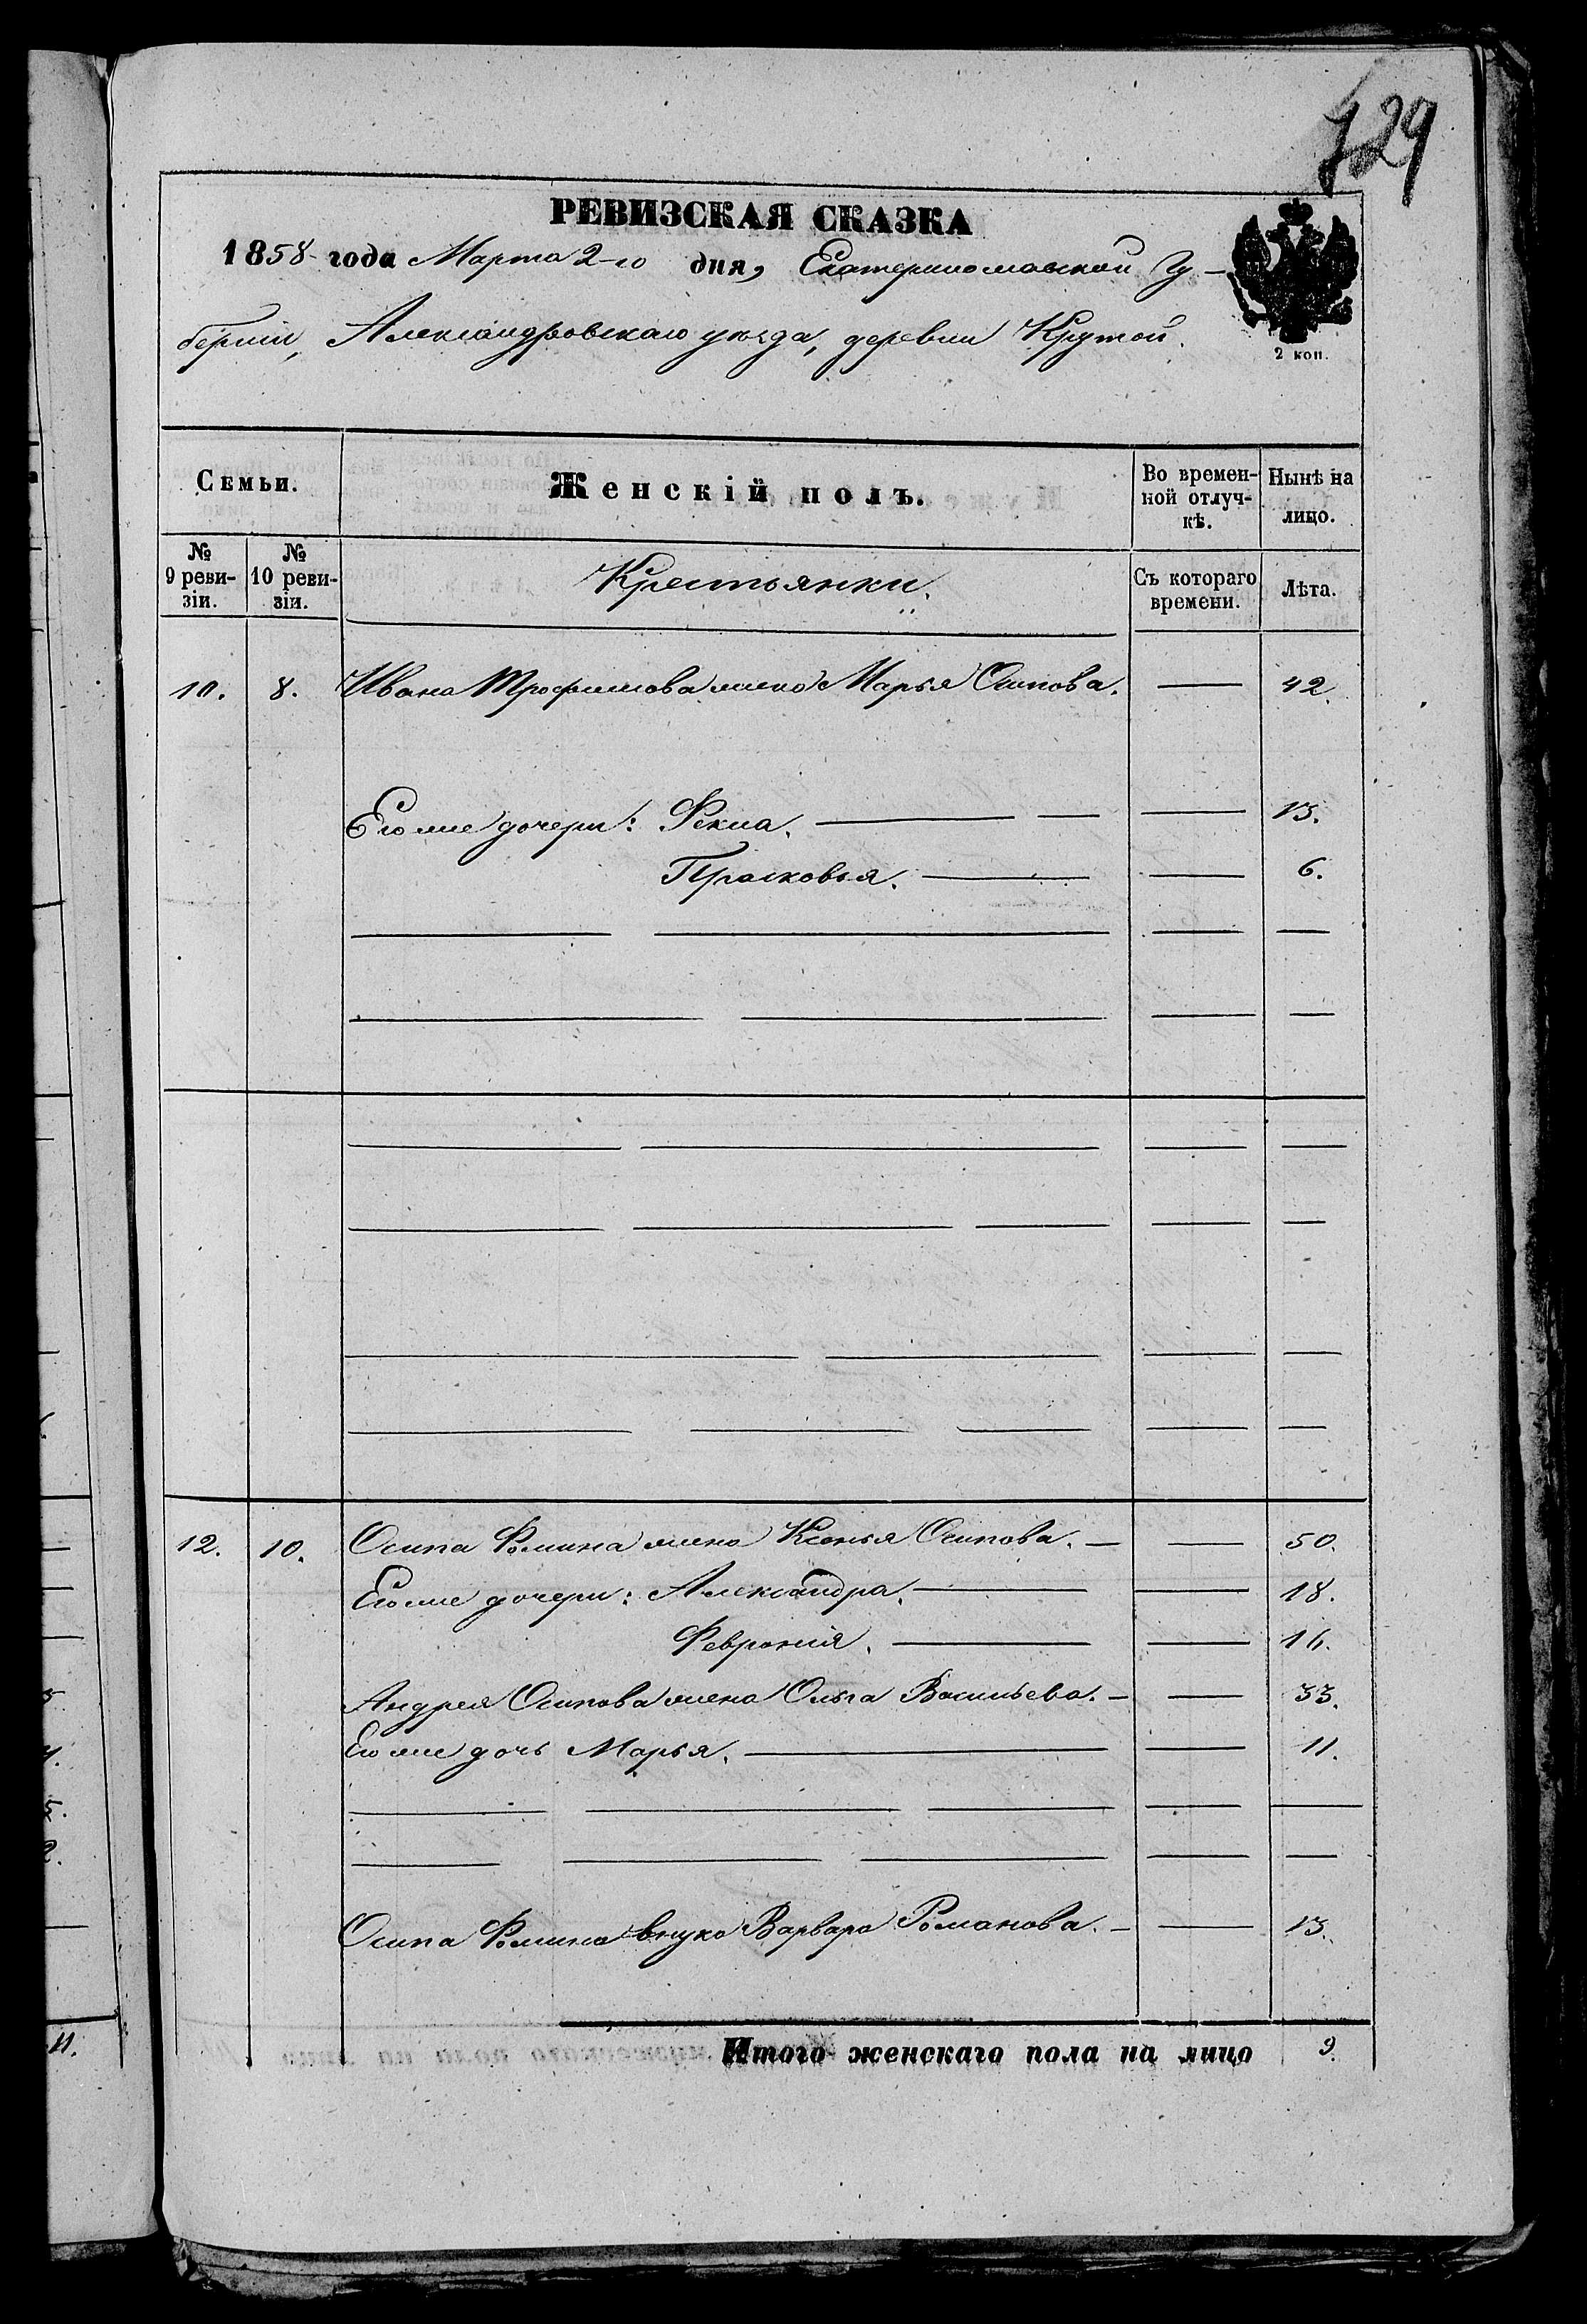 729
РЕВИЗСКАЯ СКАЗКА
1858 года Марта 2-го дня, Екатеринославской Гу-
берніи, Александровскаго уѣзда, деревни Крутой.
2 коп.
Семьи. Женскій полъ. Во времен-ной отлуч-кѣ. Нынѣ на лицо.
№ 9 реви-зіи. № 10 реви-зіи. Крестьянки. Съ котораго времени. Лѣта.
10. 8. Ивана Трофимова жена Марья Осипова. 42.
Его же дочери: Фекла. 13.
Прасковья. 6.
12. 10. Осипа Фомина жена Ксенья Осипова. 50.
Его же дочери: Александра. 18.
Феврония. 16.
Андрея Осипова жена Ольга Васильева. 33.
Его же дочь Марья. 11.
Осипа Фомина внука Варвара Романова. 13.
Итого женскаго пола на лицо 9.
11.